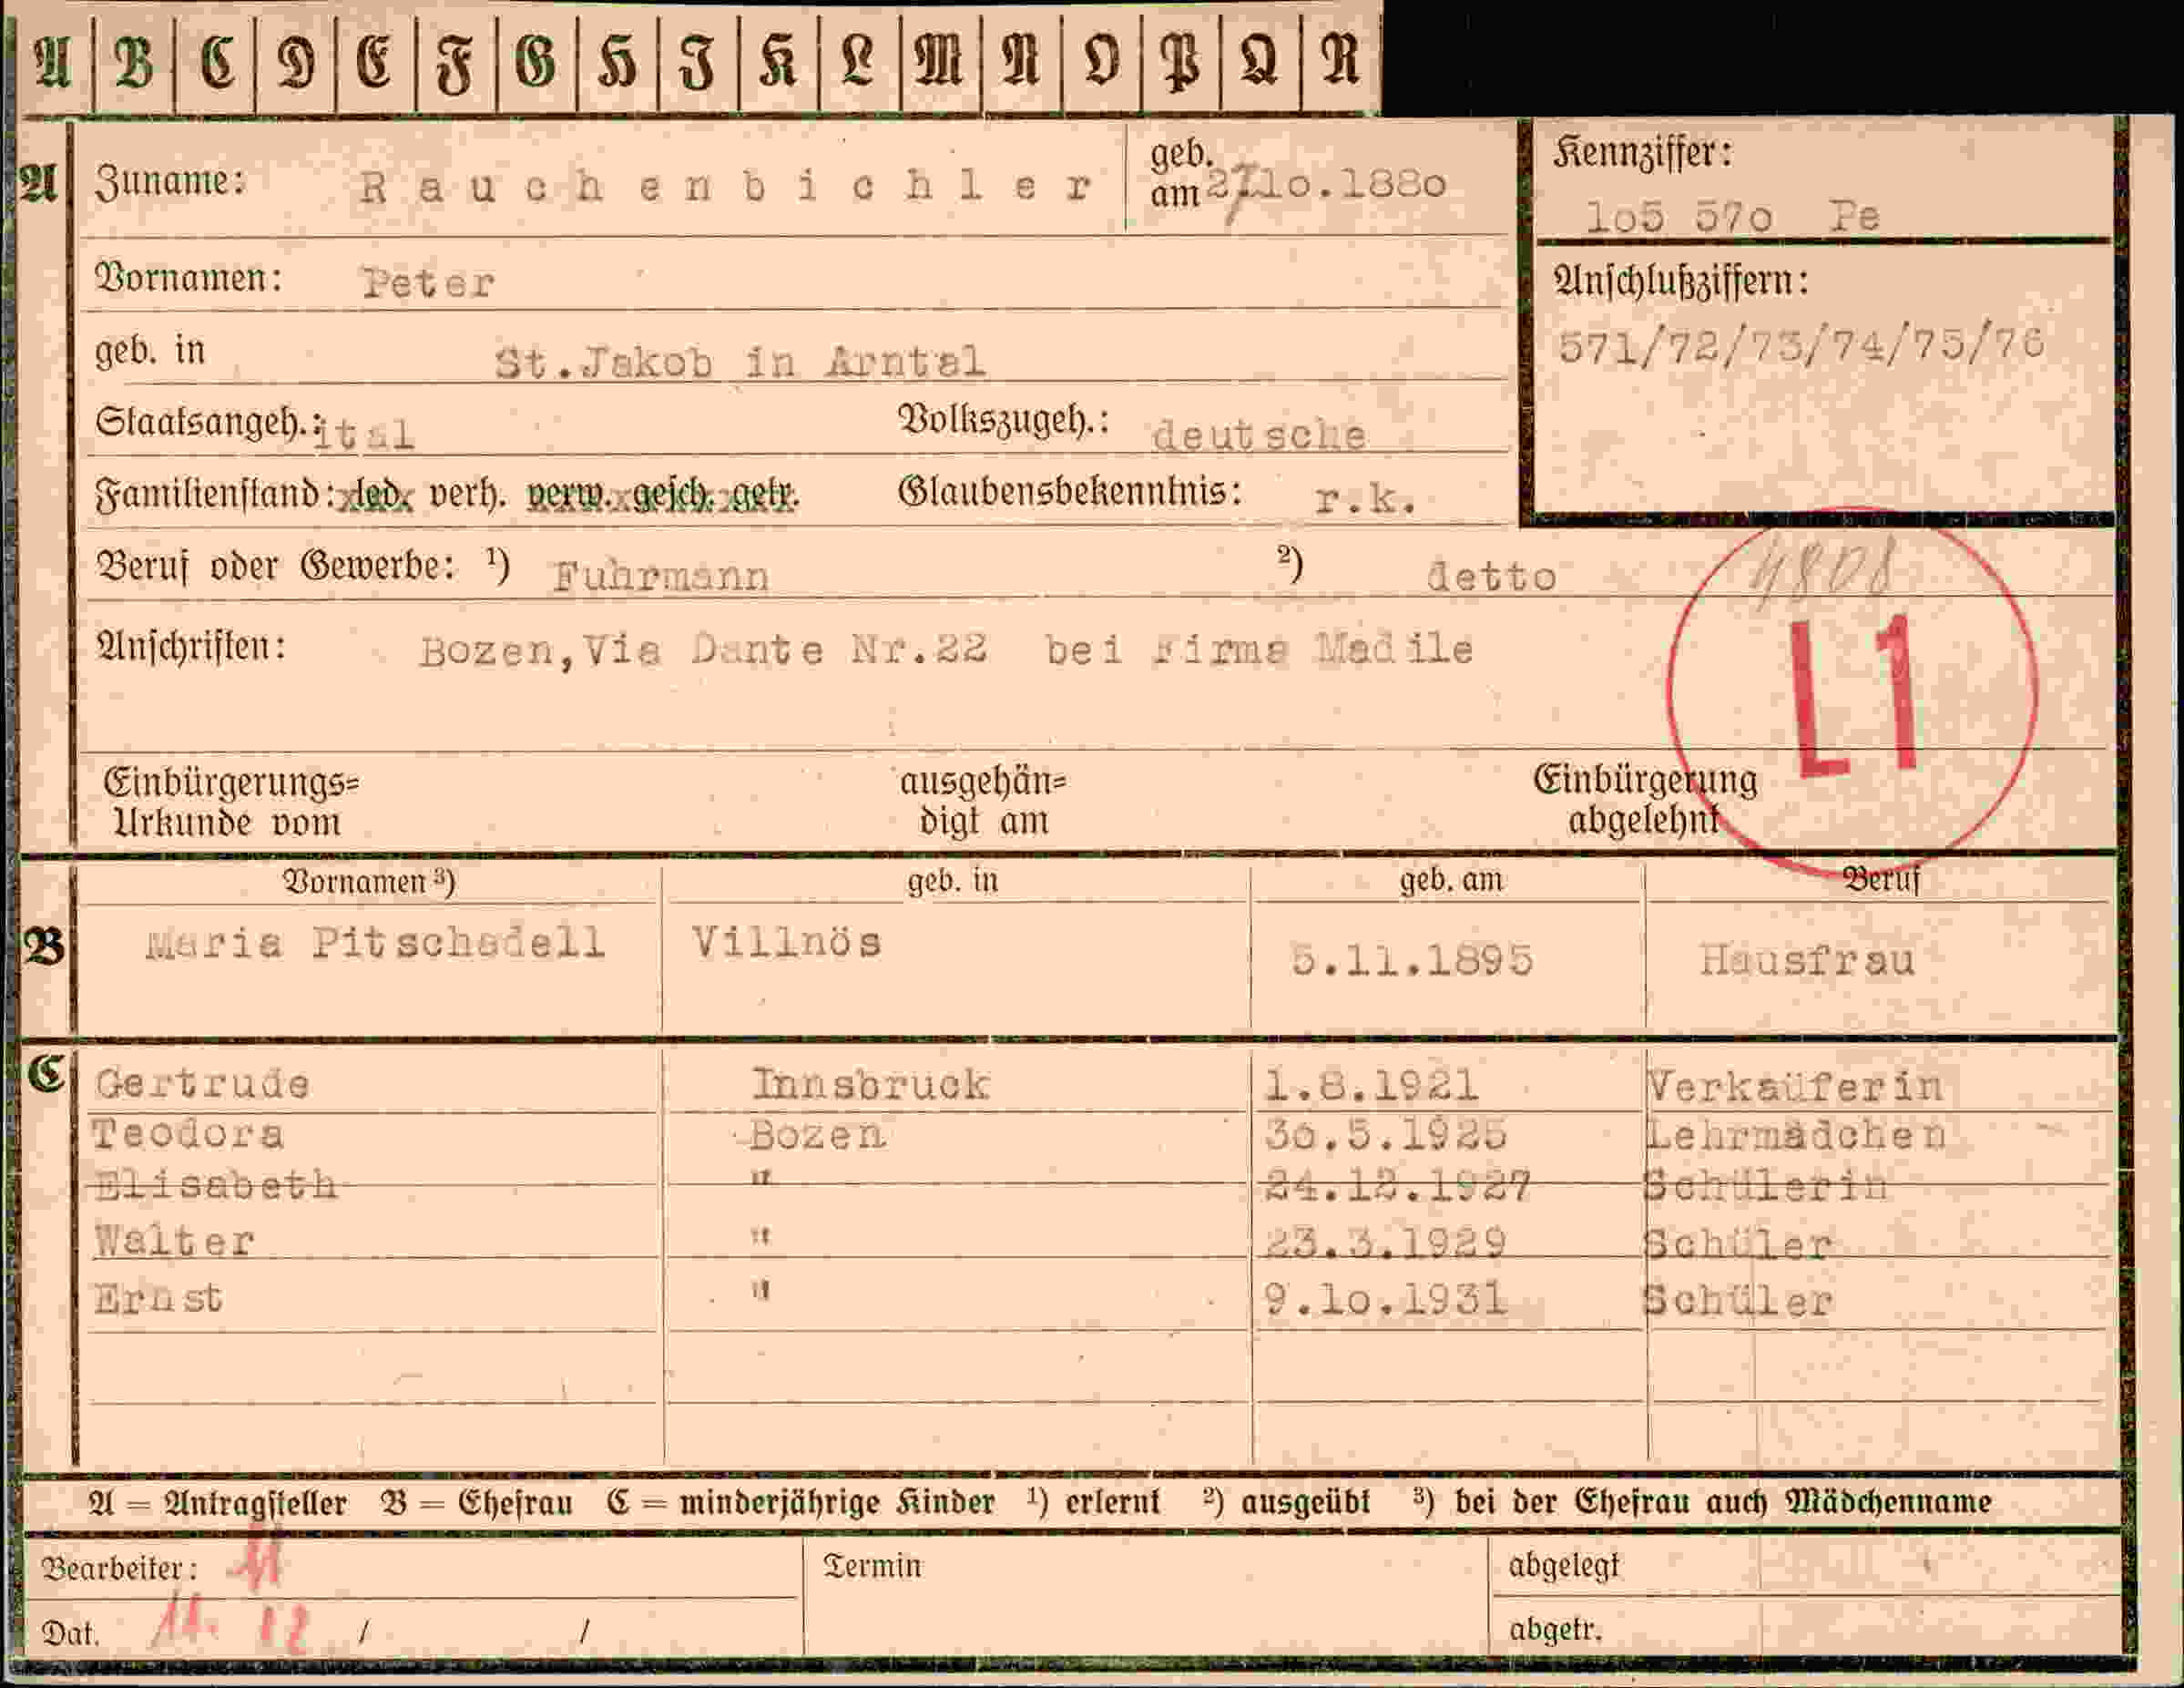 A B C D E F G H I K L M N O P Q R
A Zuname: Rauchenbichler geb. am 27.10.1880
Kennziffer:
1o5 57o Pe
Vornamen: Peter
Anschlußziffern:
571/72/73/74/75/76
geb. in St.Jakob in Arntal
Staatsangeh.: ital Volkszugeh.: deutsche
Familienstand: led. verh. verw. gesch. getr. Glaubensbekenntnis: r.k.
Beruf oder Gewerbe: 1) Fuhrmann 2) detto
4808
Anschriften: Bozen,Via Dante Nr.22 bei Firma Madile
L1
Einbürgerungs= ausgehän= Einbürgerung
Urkunde vom digt am abgelehnt
Vornamen 3) geb. in geb. am Beruf
B Maria Pitschadell Villnös 5.11.1895 Hausfrau
C Gertrude Innsbruck 1.8.1921 Verkaüferin
Teodora Bozen 3o.5.1925 Lehrmädchen
Elisabeth " 24.12.1927 Schülerin
Walter " 23.3.1929 Schüler
Ernst " 9.1o.1931 Schüler
A = Antragsteller B = Ehefrau C = minderjährige Kinder 1) erlernt 2) ausgeübt 3) bei der Ehefrau auch Mädchenname
Bearbeiter: Termin abgelegt
Dat. 11. 12 / / abgetr.